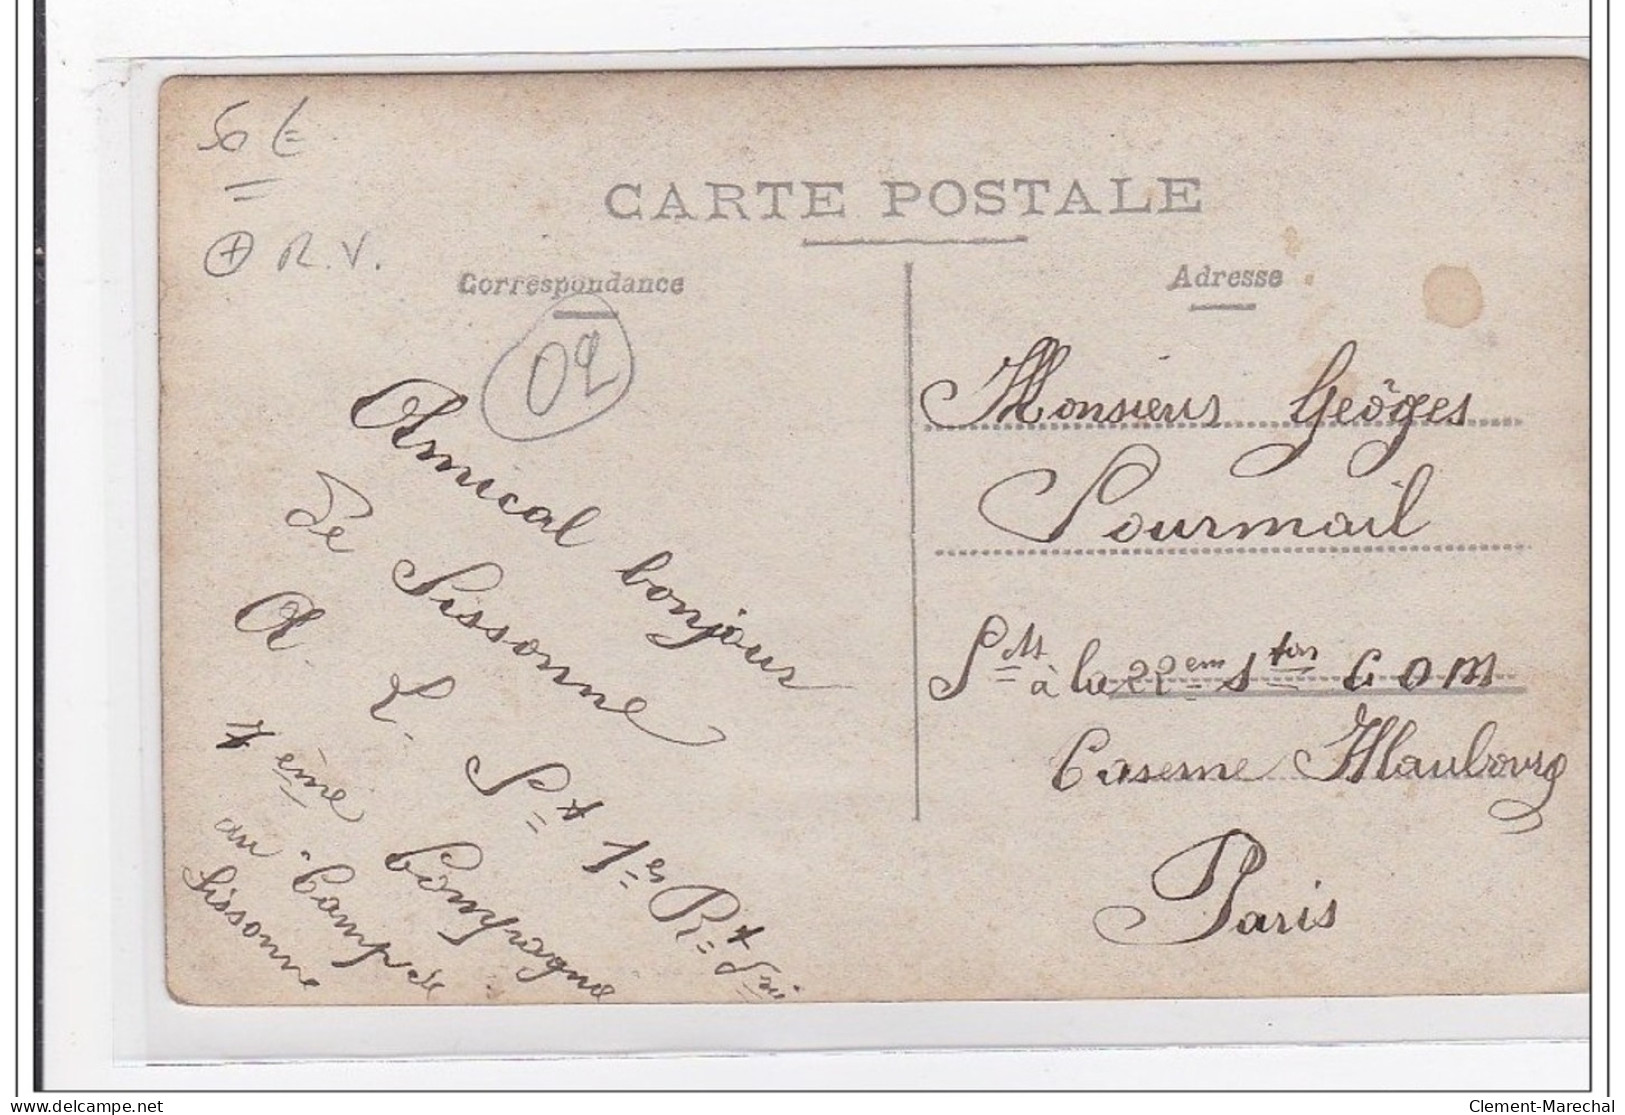 50 €
+ R. V.
CARTE POSTALE
Correspondance
Adresse
02
Amical bonjour
de Sissonne
A. L. St 1er Rt
7ème Compagnie
au Camp de
Sissonne
Monsieur Geôges
Pourmail
à la 22em Son COM
Caserne Maubourg
Paris
Clement-Marechal